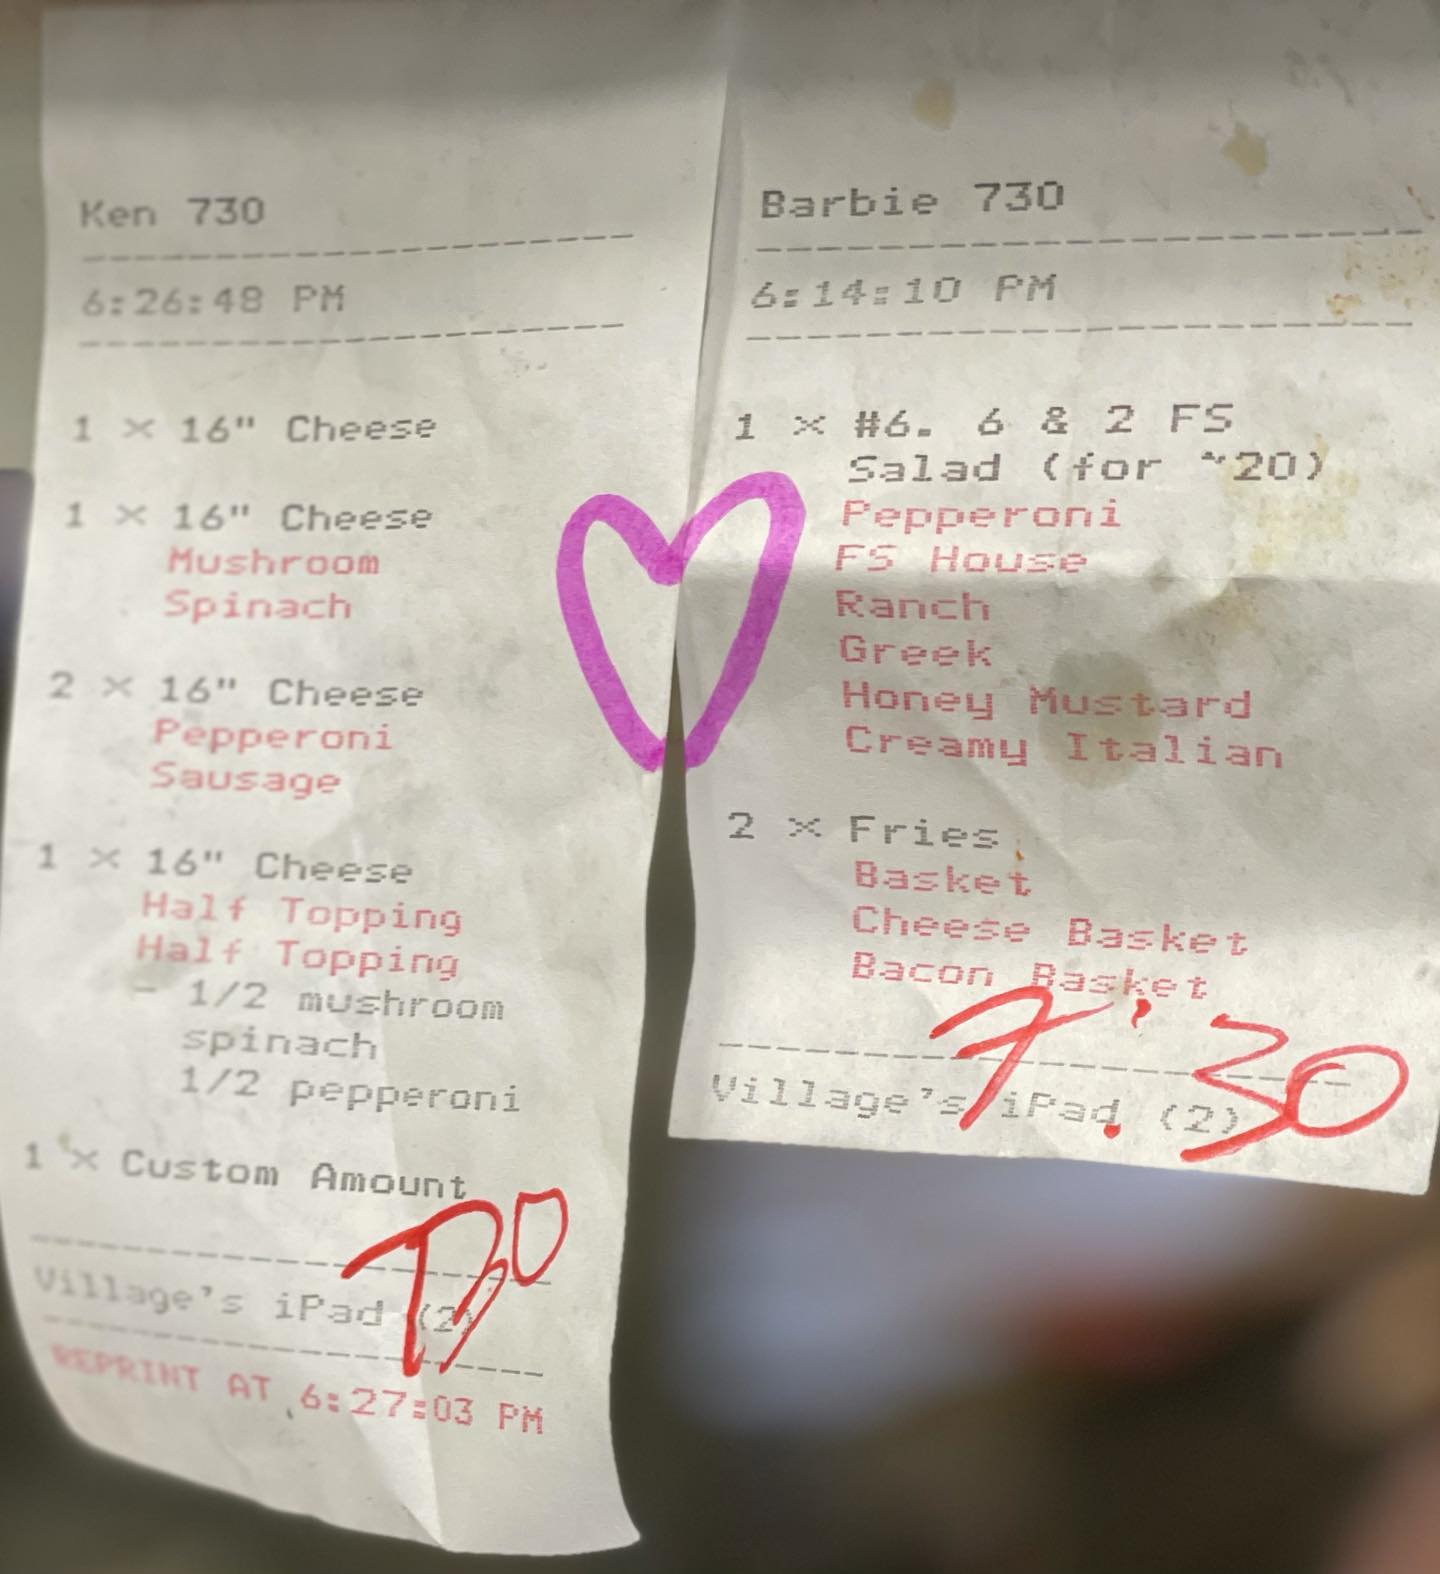 Ken 730
6:26:48 PM
1 × 16" Cheese
1 × 16" Cheese
Mushroom
Spinach
2 × 16" Cheese
Pepperoni
Sausage
1 × 16" Cheese
Half Topping
Half Topping
- 1/2 mushroom
spinach
1/2 pepperoni
1 × Custom Amount
730
Village's iPad (2)
REPRINT AT 6:27:03 PM
Barbie 730
6:14:10 PM
1 × #6. 6 & 2 FS
Salad (for ~20)
Pepperoni
FS House
Ranch
Greek
Honey Mustard
Creamy Italian
2 × Fries
Basket
Cheese Basket
Bacon Basket
7:30
Village's iPad (2)